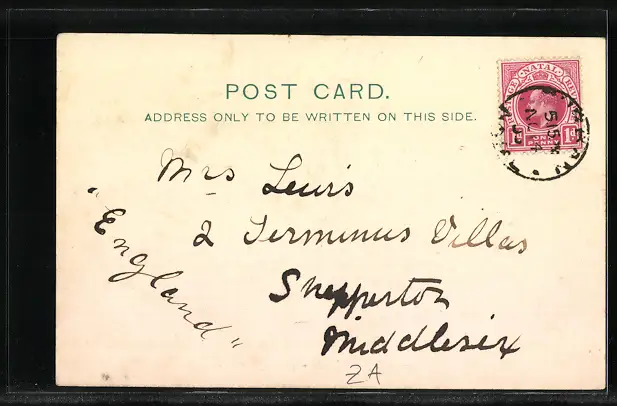 POST CARD.
ADDRESS ONLY TO BE WRITTEN ON THIS SIDE.
NATAL
ONE PENNY
1d 1d
Mrs Lewis
2 Terminus Villas
Shepperton
Middlesex
"England"
ZA